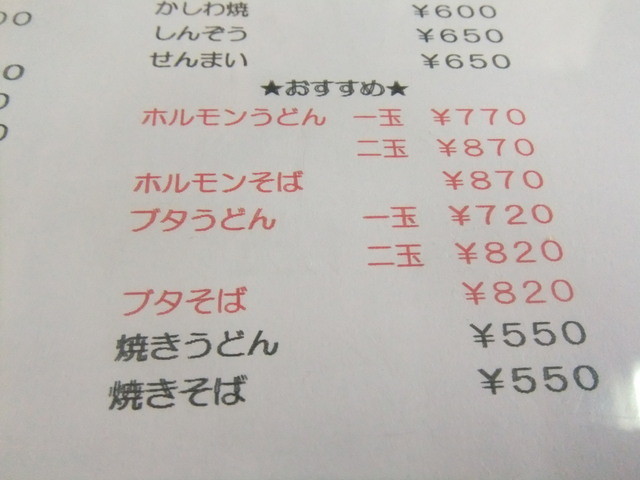 かしわ焼 ¥600
しんぞう ¥650
せんまい ¥650
★おすすめ★
ホルモンうどん 一玉 ¥770
二玉 ¥870
ホルモンそば ¥870
ブタうどん 一玉 ¥720
二玉 ¥820
ブタそば ¥820
焼きうどん ¥550
焼きそば ¥550